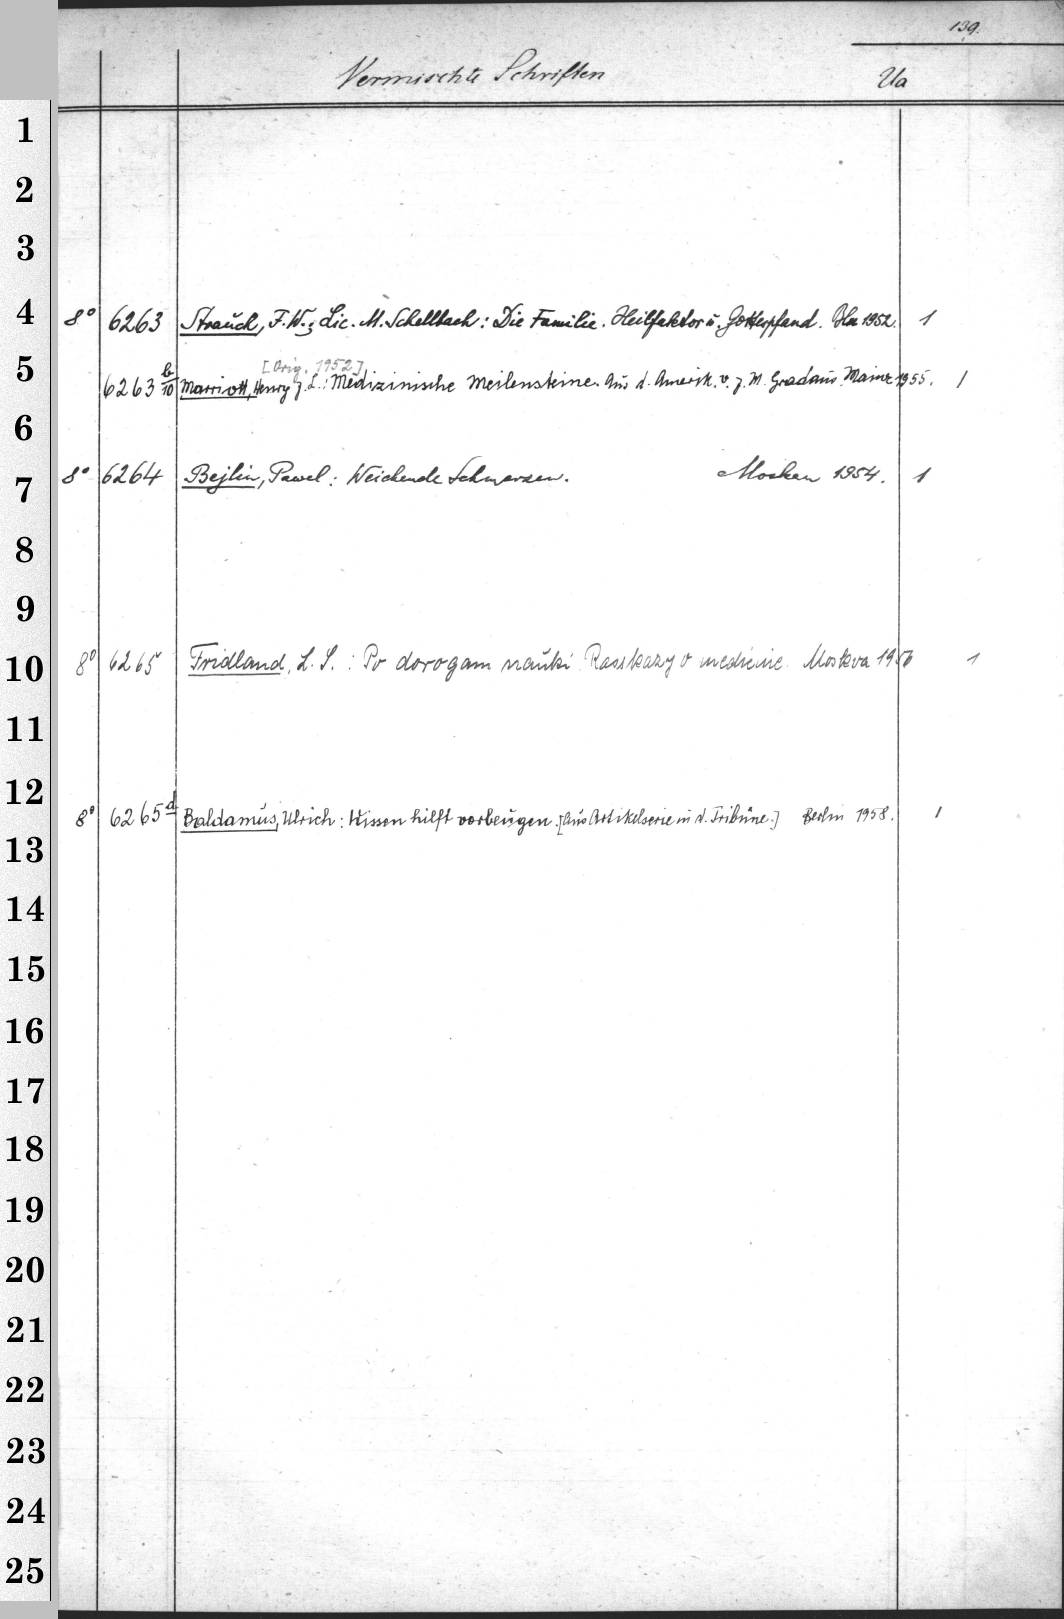 139.
Vermischte Schriften Ua
1
2
3
4 8° 6263 Strauch, F. W.; Lic. M. Schellbach: Die Familie. Heilfaktor u. Gottespfand. Bln 1952. 1
[Orig. 1952]
5 6263 b/10 Marriott, Henry J. L.: Medizinische Meilensteine. Aus d. Amerik. v. J. M. Gradaus. Mainz 1955. 1
6
7 8° 6264 Bejlin, Pawel: Weichende Schmerzen. Moskau 1954. 1
8
9
10 8° 6265 Fridland, L. S.: Po dorogam nauki. Rasskazy o medicine. Moskva 1956 1
11
12 8° 6265 d Baldamus, Ulrich: Wissen hilft vorbeugen. [Aus Artikelserie in d. Tribüne.] Berlin 1958. 1
13
14
15
16
17
18
19
20
21
22
23
24
25